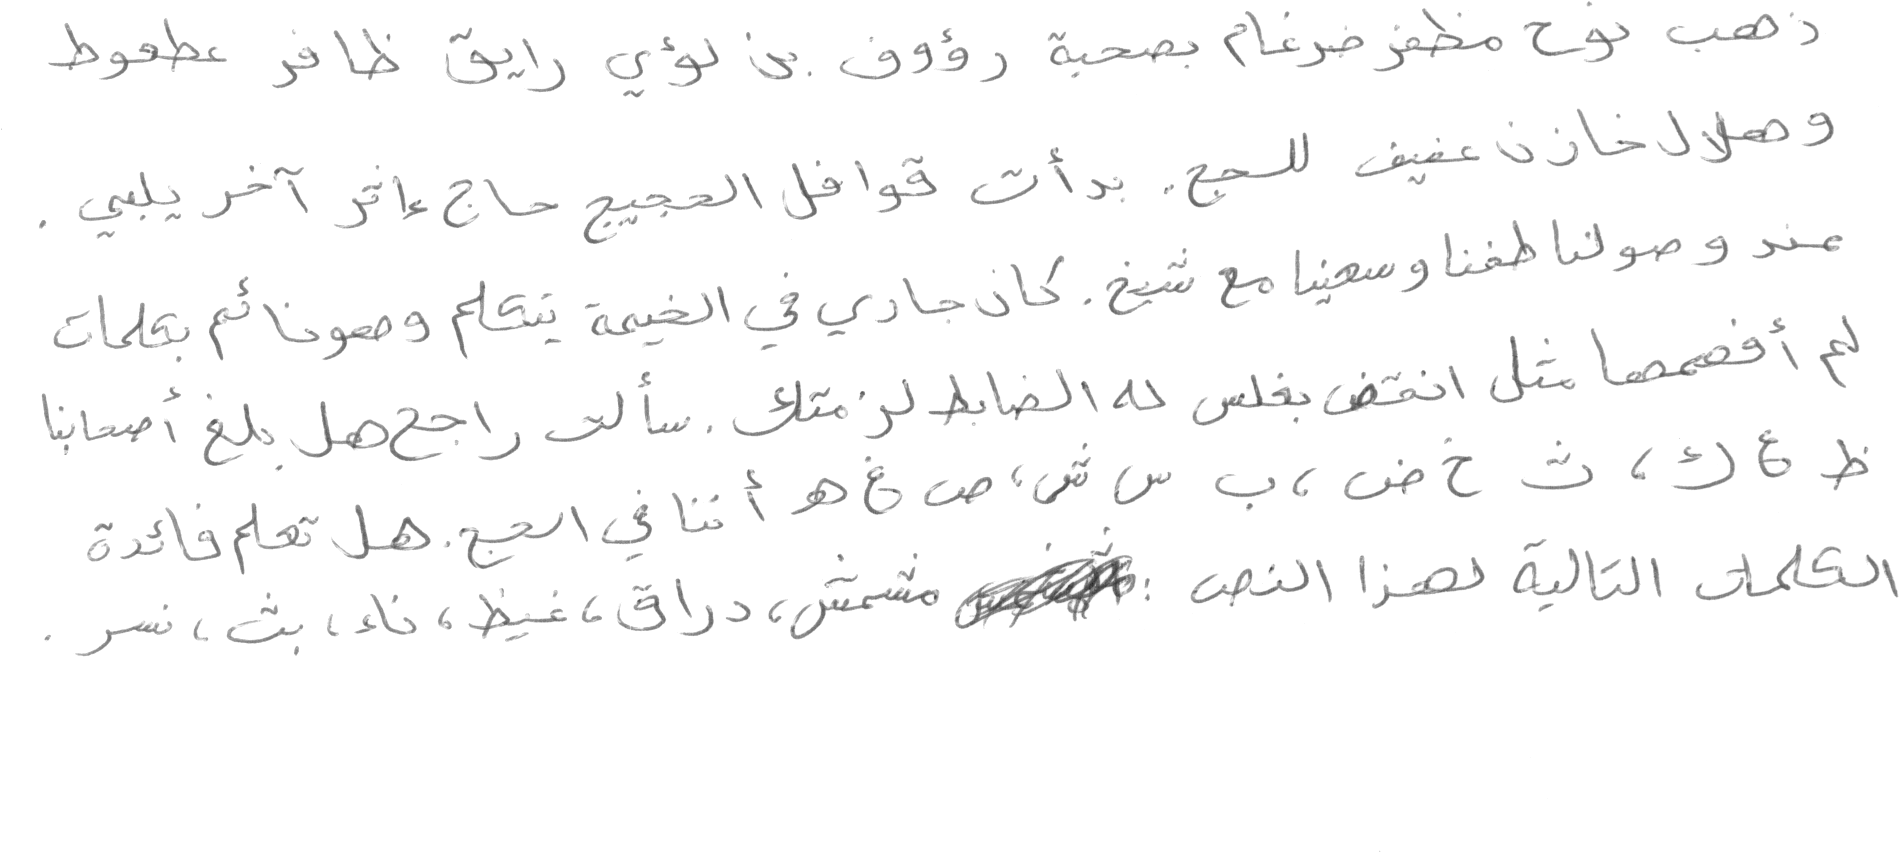 ذهب نوح مظفر ضرغام بصحبة رؤوف بن لؤي رايق ظافر عطعوط
وهلال خازن عفيف للحج. بدأت قوافل الحجيج حاج إثر آخر يلبي.
عند وصولنا طفنا وسعينا مع شيخ. كان جاري في الخيمة يتكلم وهو نائم بكلمات
لم أفهمها مثل انقض بغلس له الضابط لز متك. سألت راجح هل بلغ أصحابنا
ظ ع ك، ث خ ض، ب س ش، ص غ هـ أننا في الحج. هل تعلم فائدة
الكلمات التالية لهذا النص: مشمش، دراق، غيظ، ناء، بث، نسر.